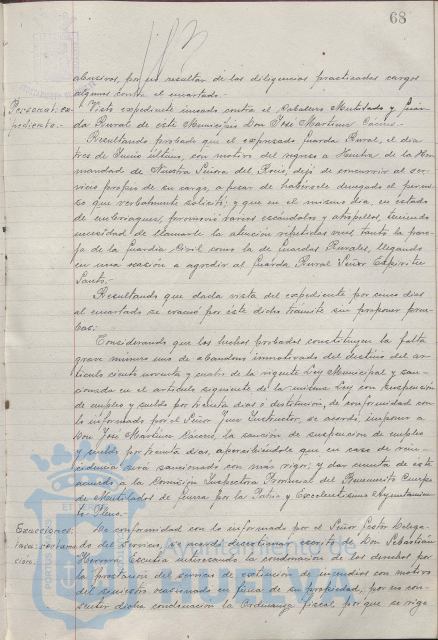 68
abusivos, por no resultar de las diligencias practicadas cargos
algunos contra el encartado.-
Personal: ex-
pediente.-
Visto expediente incoado contra el Caballero Mutilado y Guar-
da Rural de este Municipio Don José Martínez
Resultando probado que el expresado Guarda Rural, el día
tres de Junio último, con motivo del regreso a Huelva de la Her-
mandad de Nuestra Señora del Rocío, dejó de concurrir al ser-
vicio propio de su cargo, a pesar de habérsele denegado el permi-
so que verbalmente solicitó; y que en el mismo día, en estado
de embriaguez, promovió varios escándalos y atropellos, teniendo
necesidad de llamarle la atención repetidas veces tanto la pare-
ja de la Guardia Civil como la de Guardas Rurales, llegando
en una ocasión a agredir al Guarda Rural Señor Espíritu
Santo.-
Resultando que dada vista del expediente por cinco días
al encartado se evacuó por éste dicho trámite sin proponer prue-
bas;
Considerando que los hechos probados constituyen la falta
grave número uno de abandono inmotivado del destino del ar-
tículo ciento noventa y cuatro de la vigente Ley Municipal y san-
cionada en el artículo siguiente de la misma Ley con suspensión
de empleo y sueldo por treinta días o destitución, de conformidad con
lo informado por el Señor Juez Instructor, se acordó, imponer a
Don José Martínez la sanción de suspensión de empleo
y sueldo por treinta días, apercibiéndole que en caso de rein-
cidencia será sancionado con más rigor; y dar cuenta de este
acuerdo a la Comisión Inspectora Provincial del Benemérito Cuerpo
de Mutilados de Guerra por la Patria y Excelentísimo Ayuntamien-
to Pleno.-
Exacciones:
De conformidad con lo informado por el Señor Gestor Delega-
do del Servicio, se acordó desestimar escrito de Don Sebastián
Herrera interesando la condonación de los derechos por
la prestación del servicio de extinción de incendios con motivo
del siniestro ocasionado en finca de su propiedad, por no con-
sentir dicha condonación la Ordenanza fiscal por que se rige
Ayuntamiento de